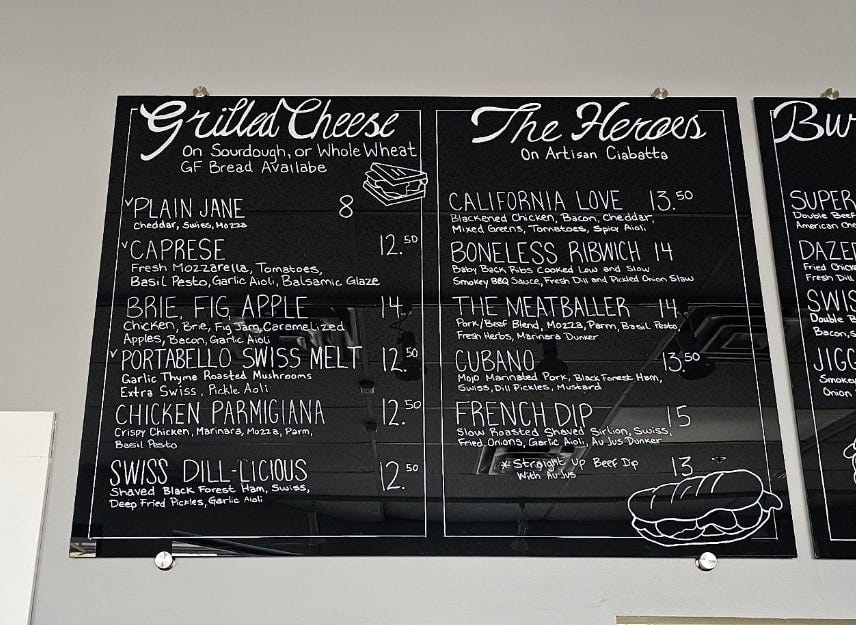 Grilled Cheese
On Sourdough, or Whole Wheat
GF Bread Availabe
✓PLAIN JANE 8
Cheddar, Swiss, Mozza
✓CAPRESE 12.50
Fresh Mozzarella, Tomatoes,
Basil Pesto, Garlic Aioli, Balsamic Glaze
BRIE, FIG, APPLE 14
Chicken, Brie, Fig Jam, Caramelized
Apples, Bacon, Garlic Aioli
✓PORTABELLO SWISS MELT 12.50
Garlic Thyme Roasted Mushrooms
Extra Swiss, Pickle Aioli
CHICKEN PARMIGIANA 12.50
Crispy Chicken, Marinara, Mozza, Parm,
Basil Pesto
SWISS DILL-LICIOUS 12.50
Shaved Black Forest Ham, Swiss,
Deep Fried Pickles, Garlic Aioli
The Heroes
On Artisan Ciabatta
CALIFORNIA LOVE 13.50
Blackened Chicken, Bacon, Cheddar,
Mixed Greens, Tomatoes, Spicy Aioli
BONELESS RIBWICH 14
Baby Back Ribs Cooked Low and Slow
Smokey BBQ Sauce, Fresh Dill and Pickled Onion Slaw
THE MEATBALLER 14
Pork/Beef Blend, Mozza, Parm, Basil Pesto,
Fresh Herbs, Marinara Dunker
CUBANO 13.50
Mojo Marinated Pork, Black Forest Ham,
Swiss, Dill Pickles, Mustard
FRENCH DIP 15
Slow Roasted Shaved Sirlion, Swiss,
Fried Onions, Garlic Aioli, Au Jus Dunker
*Straight Up Beef Dip 13
With Au Jus
Bu
SUPER
Double Beef
American Che
DAZE
Fried Chick
Fresh Dill
SWIS
Double B
Bacon, S
JIGG
Smoke
Onion